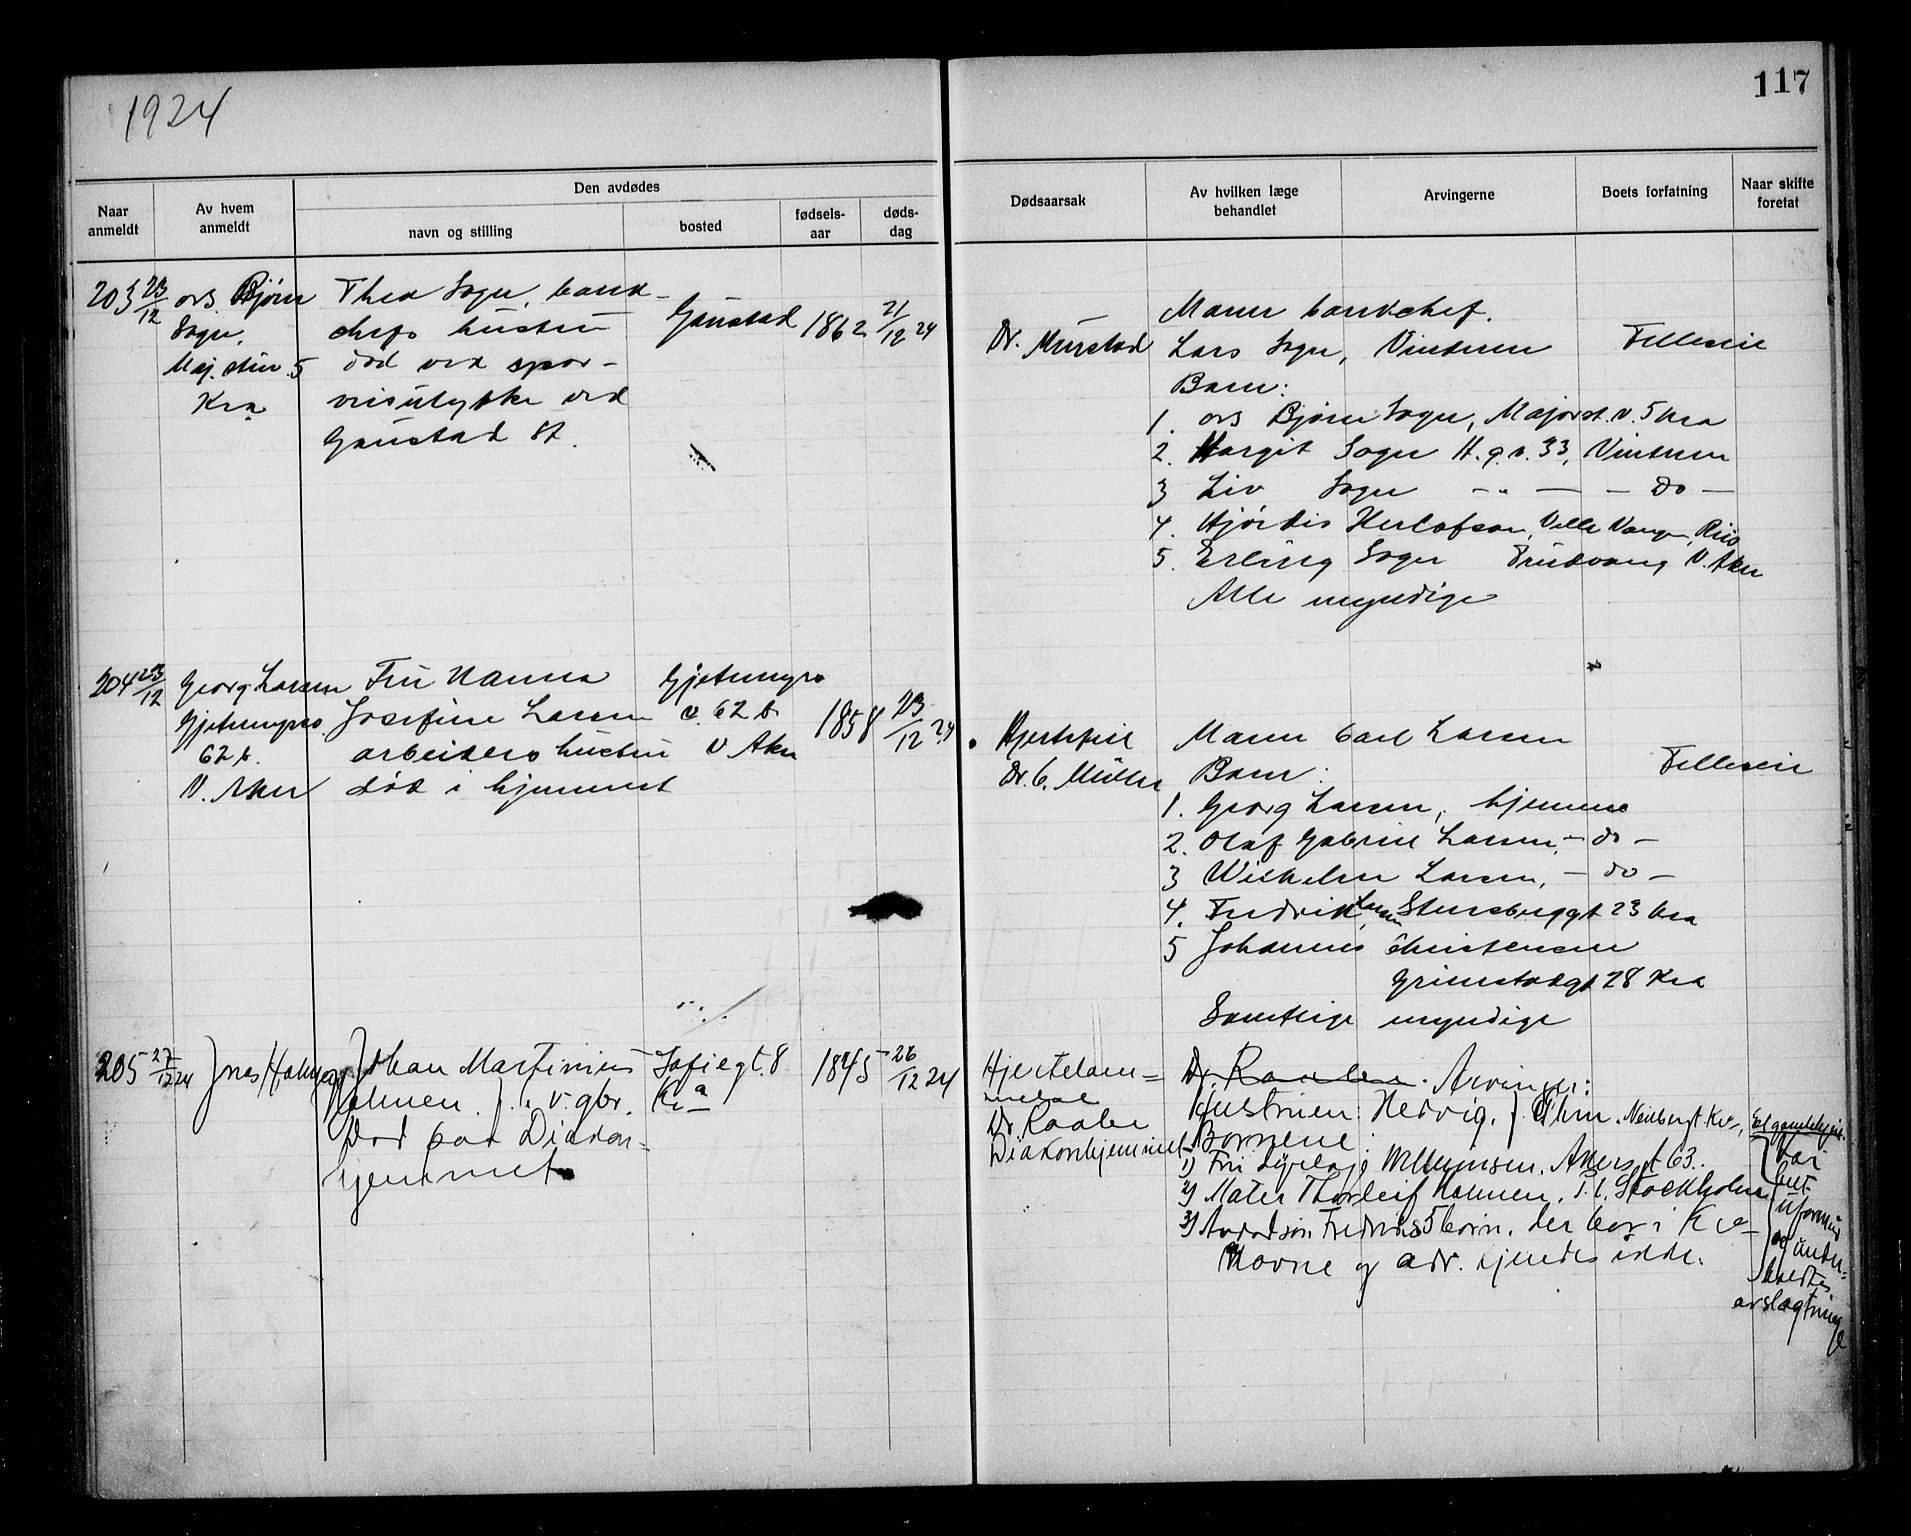 1924
117
Naar anmeldt
Av hvem anmeldt
Den avdødes
navn og stilling
bosted
fødsels-aar
døds-dag
Dødsaarsak
Av hvilken læge behandlet
Arvingerne
Boets forfatning
Naar skifte foretat
203 23/12 ovs. Bjørn
Sogn,
Maj. stuv. 5
Kra
Thea Sogn, bank-
chefs hustru
død ved spor-
veisulykke ved
Gaustad St.
Gaustad
1862
21/12 24
Dr. Mustad
Mann bankchef.
Lars Sogn, Vinderen
Fælleseie
Barn:
1. ovs Bjørn Sogn, Majorst. v. 5 Kra
2. Margit Sogn H.g.v. 33, Vinderen
3 Liv Sogn - " - - do -
4. Hjørdis Herlofson, Villa Vang, Riis
5. Erling Sogn Trudvang V. Aker
Alle myndige
204 23/12
Georg Larsen
Gjetemyrs
62 b.
V. Aker
Fru Hanna
Josefine Larsen
arbeiders hustru
død i hjemmet
Gjetemyrs
v. 62 b
V Aker
1858
23/12 24
Hjertefeil
Dr. C. Müller
Mann Carl Larsen
Barn:
Fælleseie
1. Georg Larsen, hjemme
2. Olaf Gabriel Larsen, - do -
3 Wilhelm Larsen, - do -
4. Fredrik Larsen, Stensberggt 23 Kra
5 Johannes Christensen
Grimstadgt 28 Kra
Samtlige myndige
205 27/12 24
Johan Martinius
Holmen. f. v. gbr.
Død paa Diakon=
hjemmet
Sofiegt. 8
Kra
1845
26/12 24
Hjertelam=
melse
Dr. Raabe
Diakonhjemmet
Dr. Raabe. Arvinger:
Hustruen Hedvig, f.
Børnene:
1) Fru dyrlæge Willumsen. Akersgt 63.
2) Maler Thorleif Holmen, p.t. Stockholm
3) Avdød søn Fredriks 5 børn. der bor i Kra
Navne og adr. kjendes ikke.
har
int.
uformue
og under=
holdtes
av slægtninge